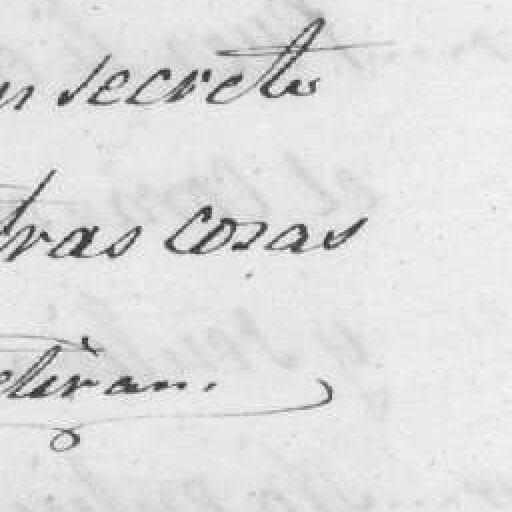 n secreto
tras cosas
etiran.